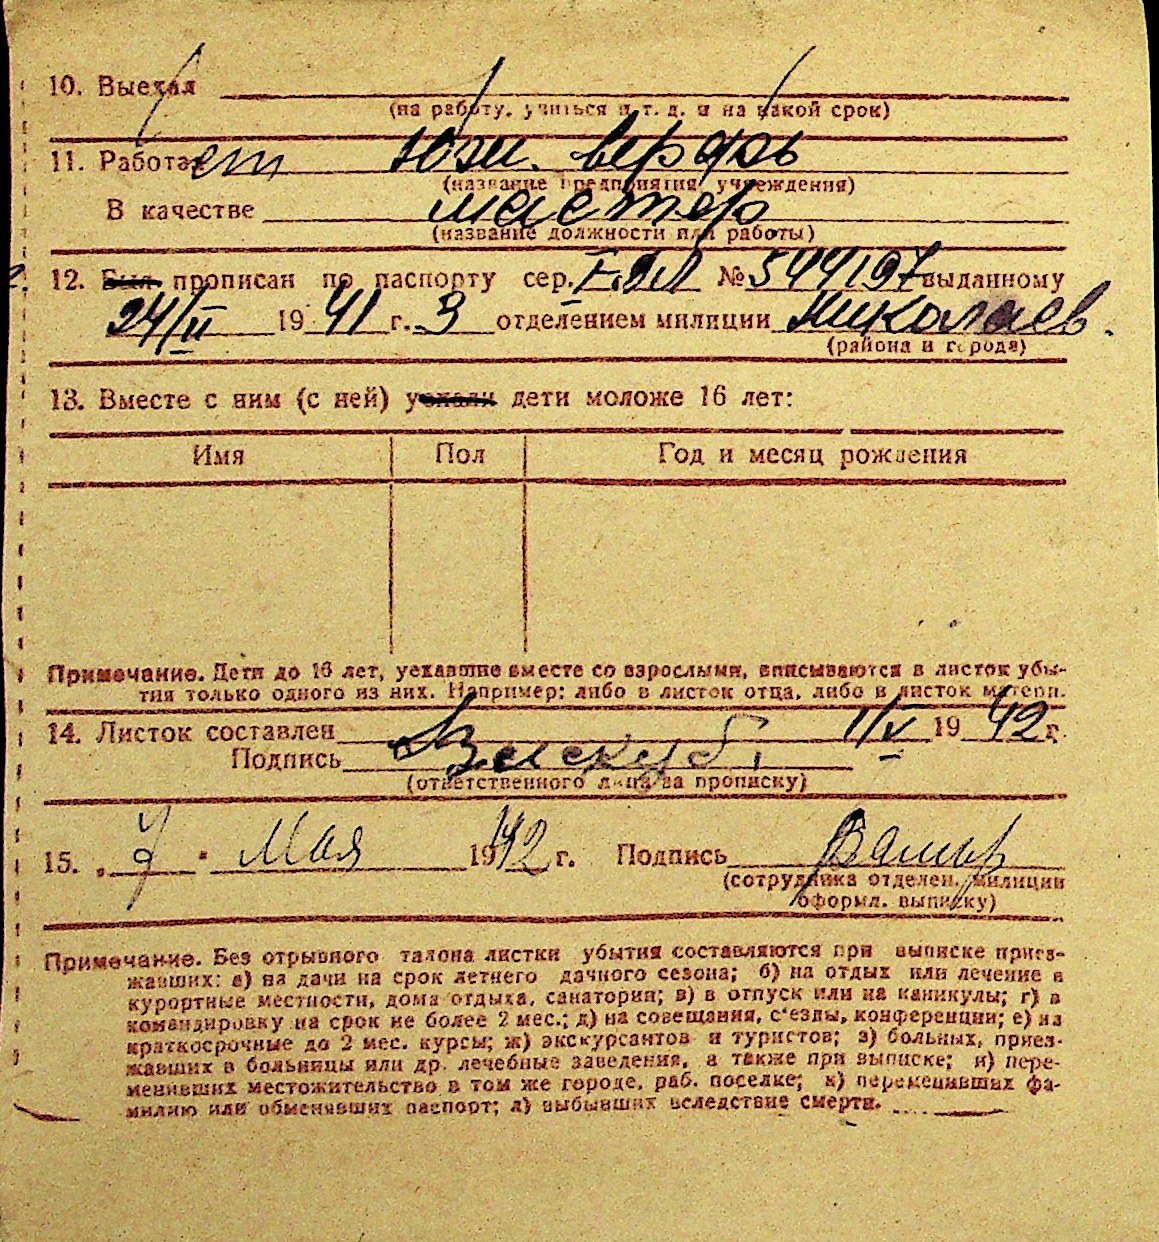 10. Выехал
(на работу, учиться и т. д. и на какой срок)
11. Работает Юж. верфь
(название предприятия, учреждения)
В качестве мастер
(название должности или работы)
12. Был прописан по паспорту сер. № 544197 выданному
24/II 1941 г. 3 отделением милиции Николаев.
(района и города)
13. Вместе с ним (с ней) уехали дети моложе 16 лет:
Имя Пол Год и месяц рождения
Примечание. Дети до 16 лет, уехавшие вместе со взрослыми, вписываются в листок убы-
тия только одного из них. Например: либо в листок отца, либо в листок матери.
14. Листок составлен 1/V 1942 г.
Подпись
(ответственного лица за прописку)
15. „7" Мая 1942 г. Подпись
(сотрудника отделен. милиции
оформл. выписку)
Примечание. Без отрывного талона листки убытия составляются при выписке приез-
жавших: а) на дачи на срок летнего дачного сезона; б) на отдых или лечение в
курортные местности, дома отдыха, санатории; в) в отпуск или на каникулы; г) в
командировку на срок не более 2 мес.; д) на совещания, с'езды, конференции; е) на
краткосрочные до 2 мес. курсы; ж) экскурсантов и туристов; з) больных, приез-
жавших в больницы или др. лечебные заведения, а также при выписке; и) пере-
менивших местожительство в том же городе, раб. поселке; к) переменивших фа-
милию или обменявших паспорт; л) выбывших вследствие смерти.